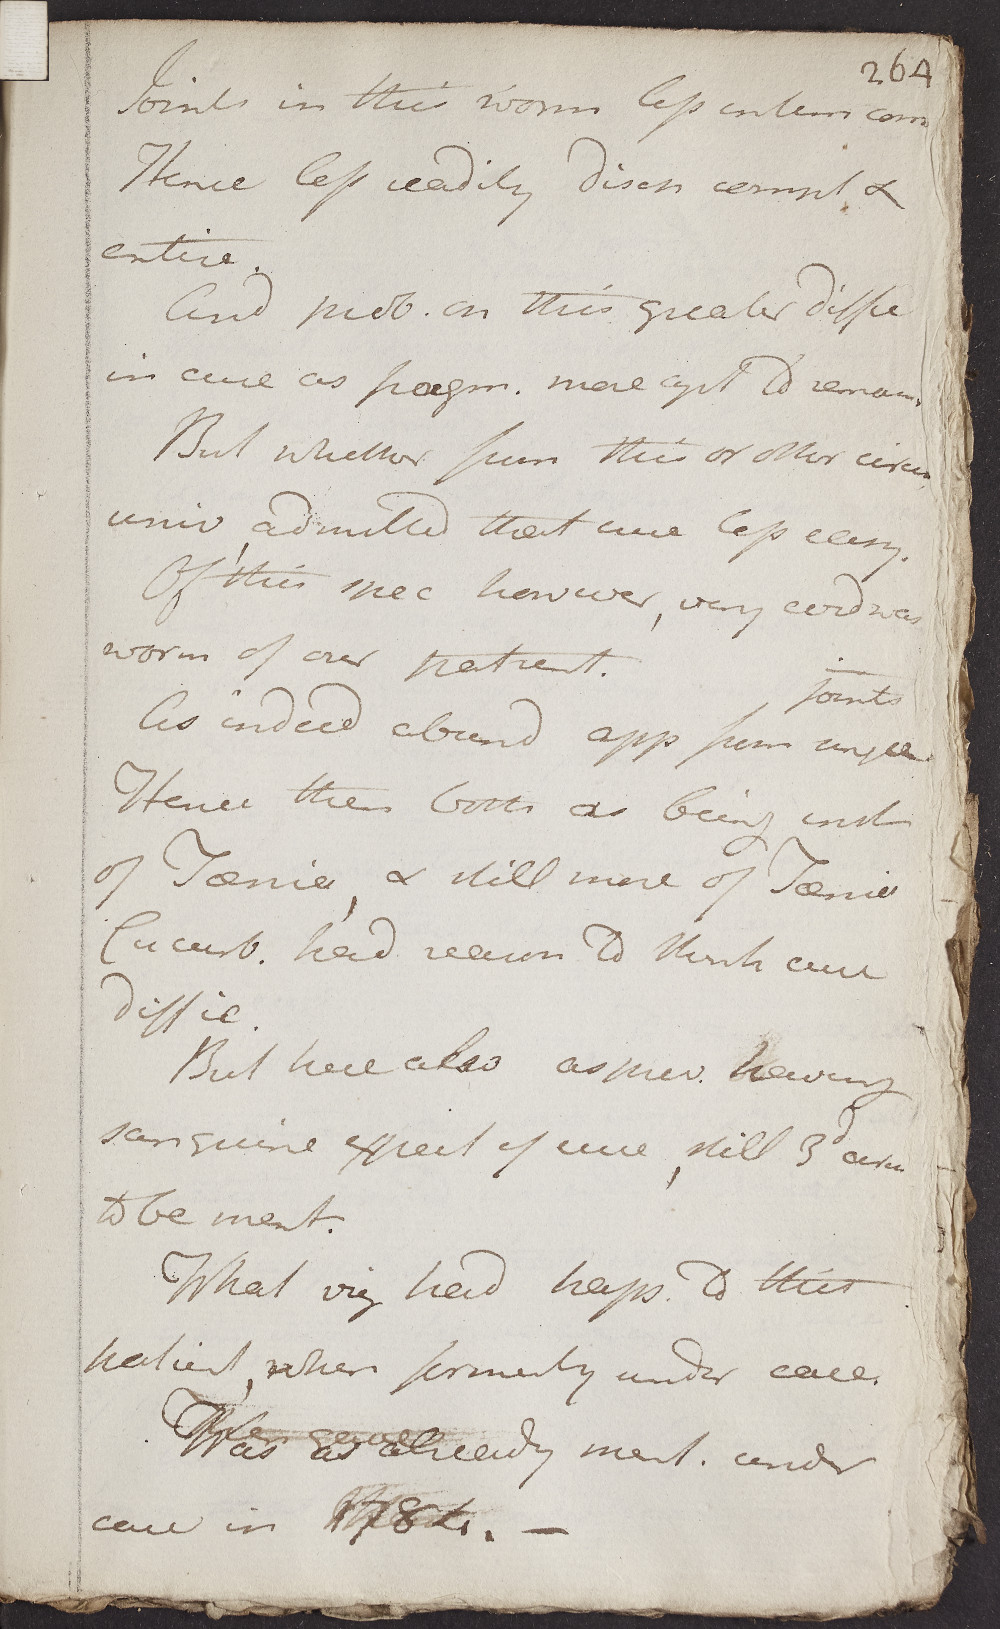 264
Joints in this worm less intim con
Hence less readily disch compl &
entire.
And prob. on this greater diffic
in cure as fragm. more apt to remain
But whether from this or other circum
univ, admitted that cure less easy.
Of this spec however, very cerd was
worm of our patient.
joints
As indeed abund app from
Hence then both as being inst
of Tænia, & still more of Tænia
Cucurb. had reason to think cure
diffic.
But here also as prev. having
sanguine expect of cure, still 3d circum
to be ment.
What viz had haps. to this
patient, when formerly under care.
Was as already ment. under
care in 1784. —